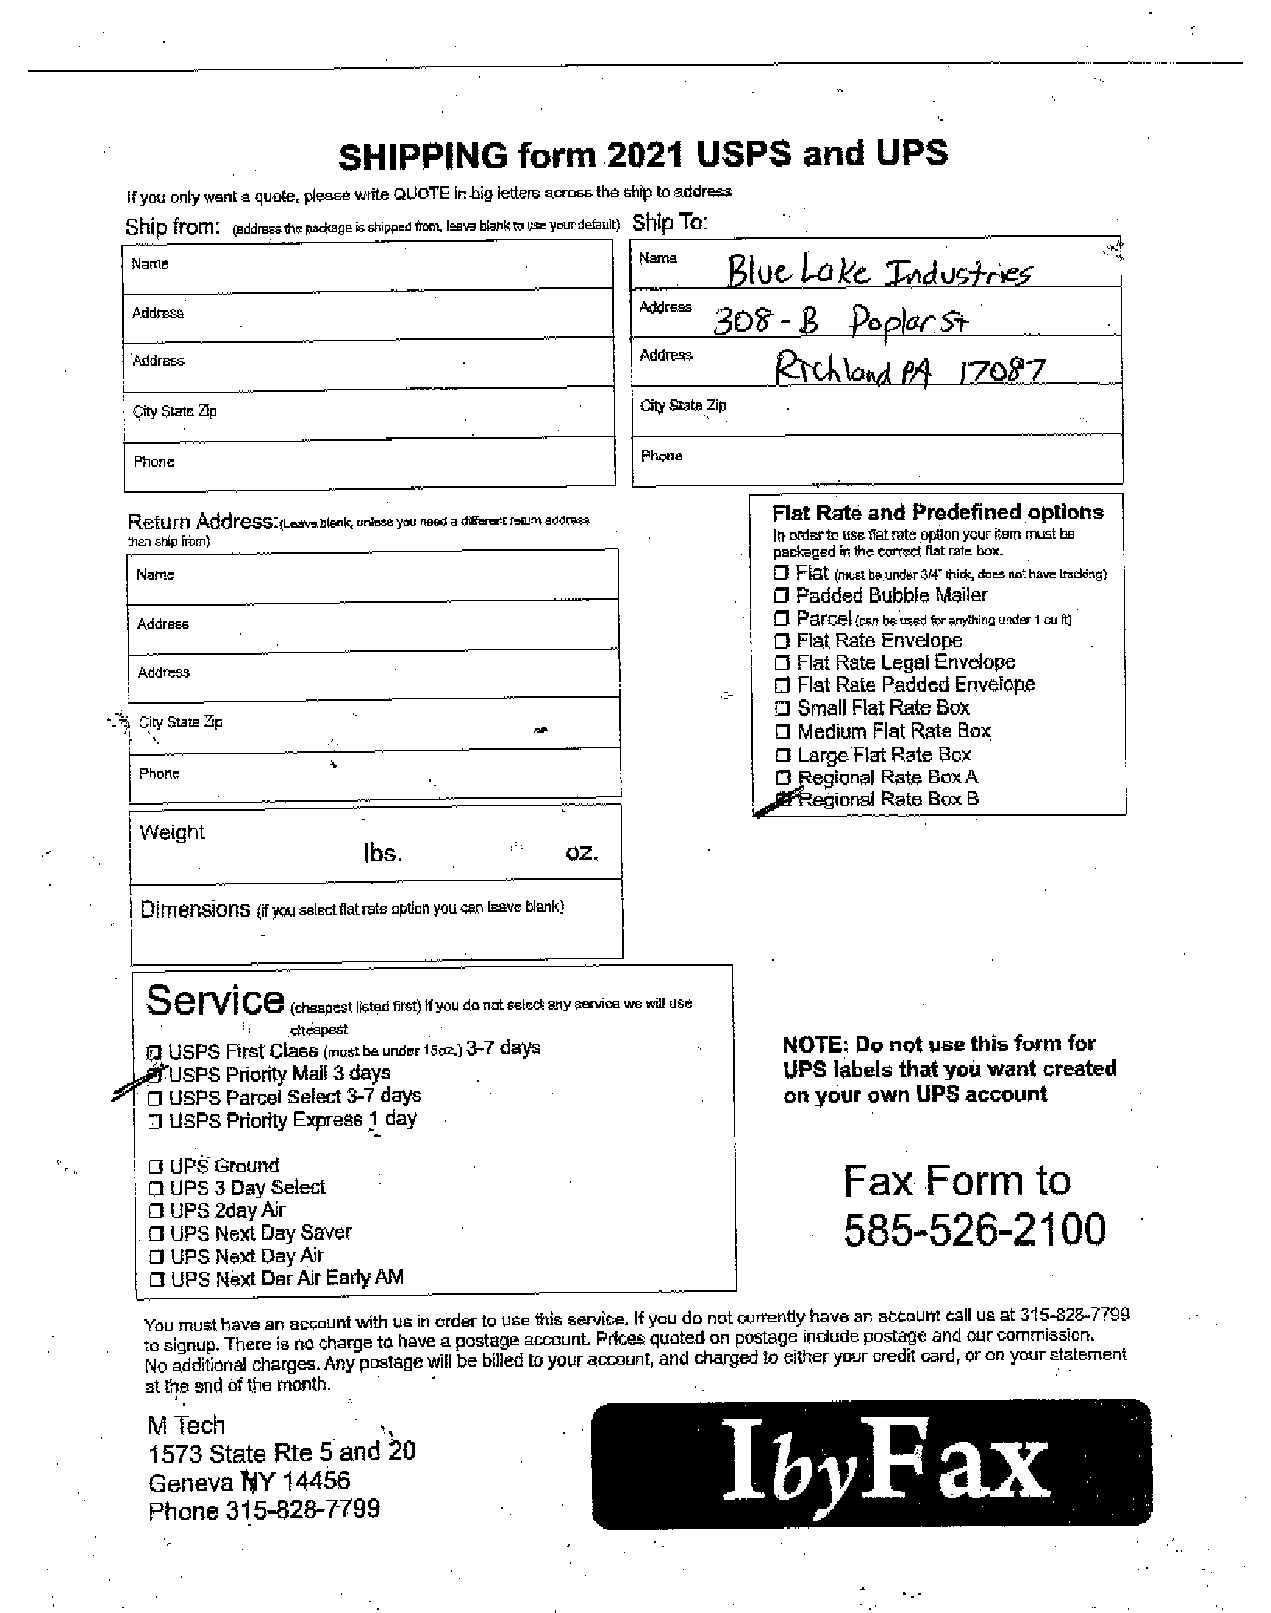 SHIPPING form 2021 USPS and UPS
If you only want a quote, please write QUOTE in big letters across the ship to address
Ship from: (address the package is shipped from, leave blank to use your default) Ship To:
Name
Name Blue Lake Industries
Address
Address 308-B Poplar St
Address
Address Richland PA 17087
City State Zip
City State Zip
Phone
Phone
Return Address: (Leave blank, unless you need a different return address
then ship from)
Name
Address
Address
City State Zip
Phone
Flat Rate and Predefined options
In order to use flat rate option your item must be
packaged in the correct flat rate box.
☐ Flat (must be under 3/4" thick, does not have tracking)
☐ Padded Bubble Mailer
☐ Parcel (can be used for anything under 1 cu ft)
☐ Flat Rate Envelope
☐ Flat Rate Legal Envelope
☐ Flat Rate Padded Envelope
☐ Small Flat Rate Box
☐ Medium Flat Rate Box
☐ Large Flat Rate Box
☐ Regional Rate Box A
☑ Regional Rate Box B
Weight
lbs. oz.
Dimensions (if you select flat rate option you can leave blank)
Service (cheapest listed first) If you do not select any service we will use
cheapest
☐ USPS First Class (must be under 15oz.) 3-7 days
☑ USPS Priority Mail 3 days
☐ USPS Parcel Select 3-7 days
☐ USPS Priority Express 1 day
☐ UPS Ground
☐ UPS 3 Day Select
☐ UPS 2day Air
☐ UPS Next Day Saver
☐ UPS Next Day Air
☐ UPS Next Dar Air Early AM
NOTE: Do not use this form for
UPS labels that you want created
on your own UPS account
Fax Form to
585-526-2100
You must have an account with us in order to use this service. If you do not currently have an account call us at 315-828-7799
to signup. There is no charge to have a postage account. Prices quoted on postage include postage and our commission.
No additional charges. Any postage will be billed to your account, and charged to either your credit card, or on your statement
at the end of the month.
M Tech
1573 State Rte 5 and 20
Geneva NY 14456
Phone 315-828-7799
IbyFax